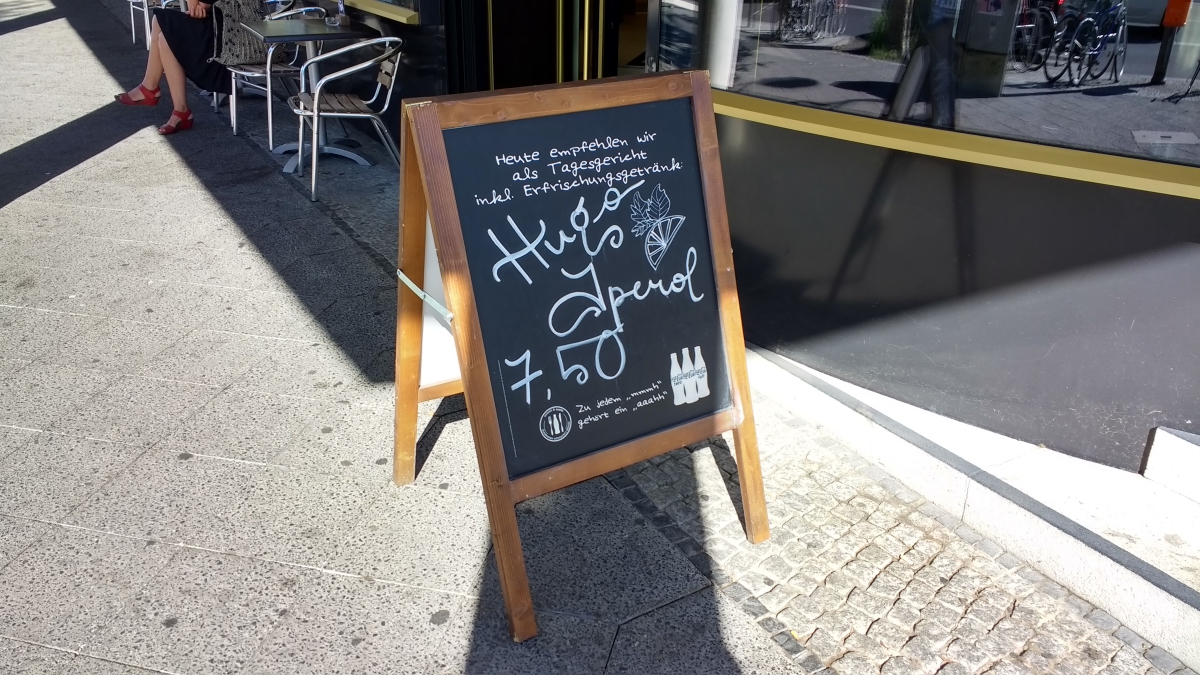 Heute empfehlen wir
als Tagesgericht
inkl. Erfrischungsgetränk:
Hugo
Aperol
7,50
Zu jedem „mmmh"
gehört ein „aaahh"